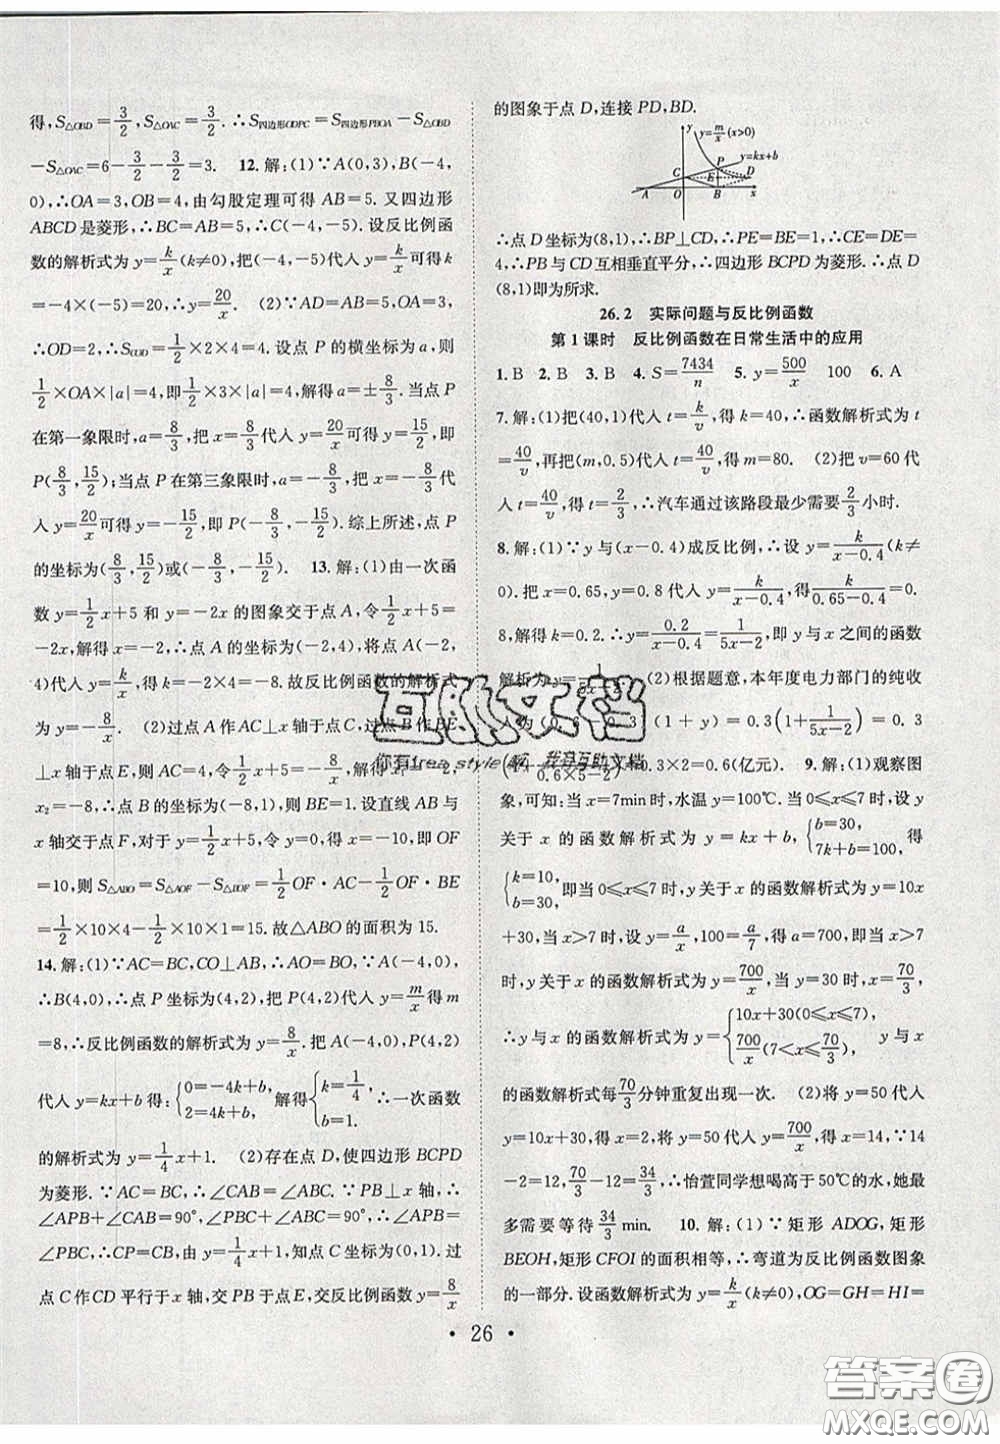 得,S△OBD=3/2,S△OAC=3/2.∴S四边形ODPC=S四边形PBOA-S△OBD
-S△OAC=6-3/2-3/2=3. 12.解:(1)∵A(0,3),B(-4,
0),∴OA=3,OB=4,由勾股定理可得AB=5.又四边形
ABCD是菱形,∴BC=AB=5,∴C(-4,-5).设反比例函
数的解析式为y=k/x(k≠0),把(-4,-5)代入y=k/x可得k
=-4×(-5)=20,∴y=20/x. (2)∵AD=AB=5,OA=3,
∴OD=2,∴S△COD=1/2×2×4=4.设点P的横坐标为a,则
1/2×OA×|a|=4,即1/2×3×|a|=4,解得a=±8/3.当点P
在第一象限时,a=8/3,把x=8/3代入y=20/x可得y=15/2,即
P(8/3,15/2);当点P在第三象限时,a=-8/3,把x=-8/3代
入y=20/x可得y=-15/2,即P(-8/3,-15/2).综上所述,点P
的坐标为(8/3,15/2)或(-8/3,-15/2). 13.解:(1)由一次函
数y=1/2x+5和y=-2x的图象交于点A,令1/2x+5=
-2x,解得x=-2,∴点A的坐标为(-2,4),将点A(-2,
4)代入y=k/x,得k=-2×4=-8.故反比例函数的解析式
为y=-8/x. (2)过点A作AC⊥x轴于点C,过点B作BE
⊥x轴于点E,则AC=4,令-8/x=1/2x+5,解得x1=-2,
x2=-8,∴点B的坐标为(-8,1),则BE=1.设直线AB与
x轴交于点F,对于y=1/2x+5,令y=0,得x=-10,即OF
=10,则S△ABO=S△AOF-S△BOF=1/2OF·AC-1/2OF·BE
=1/2×10×4-1/2×10×1=15.故△ABO的面积为15.
14.解:(1)∵AC=BC,CO⊥AB,∴AO=BO,∵A(-4,0),
∴B(4,0),∴点P坐标为(4,2),把P(4,2)代入y=m/x得m
=8,∴反比例函数的解析式为y=8/x.把A(-4,0),P(4,2)
代入y=kx+b得:{0=-4k+b,2=4k+b,解得{k=1/4,b=1.∴一次函数
的解析式为y=1/4x+1. (2)存在点D,使四边形BCPD
为菱形.∵AC=BC,∴∠CAB=∠ABC.∵PB⊥x轴,∴
∠APB+∠CAB=90°,∠PBC+∠ABC=90°,∴∠APB=
∠PBC,∴CP=CB,由y=1/4x+1,知点C坐标为(0,1).过
点C作CD平行于x轴,交PB于点E,交反比例函数y=8/x
的图象于点D,连接PD,BD.
y y=m/x(x>0)
P y=kx+b
C E D
A O B x
∴点D坐标为(8,1),∴BP⊥CD,∴PE=BE=1,∴CE=DE=
4,∴PB与CD互相垂直平分,∴四边形BCPD为菱形.∴点D
(8,1)即为所求.
26.2 实际问题与反比例函数
第1课时 反比例函数在日常生活中的应用
1.B 2.B 3.B 4.S=7434/n 5.y=500/x 100 6.A
7.解:(1)把(40,1)代入t=k/v,得k=40,∴函数解析式为t
=40/v,再把(m,0.5)代入t=40/v,得m=80. (2)把v=60代
入t=40/v,得t=2/3,∴汽车通过该路段最少需要2/3小时.
8.解:(1)∵y与(x-0.4)成反比例,∴设y=k/(x-0.4)(k≠
0).把x=0.65,y=0.8代入y=k/(x-0.4),得k/(0.65-0.4)=0.
8,解得k=0.2.∴y=0.2/(x-0.4)=1/(5x-2),即y与x之间的函数
解析为y= (2)根据题意,本年度电力部门的纯收
入为 (1+y)=0.3(1+1/(5x-2))=0.3
0.6×5-2)=0.3×2=0.6(亿元). 9.解:(1)观察图
象,可知:当x=7min时,水温y=100℃.当0≤x≤7时,设y
关于x的函数解析式为y=kx+b,{b=30,7k+b=100,得
{k=10,b=30,即当0≤x≤7时,y关于x的函数解析式为y=10x
+30,当x>7时,设y=a/x,100=a/7,得a=700,即当x>7
时,y关于x的函数解析式为y=700/x,当y=30时,x=70/3,
∴y与x的函数解析式为y={10x+30(0≤x≤7),700/x(7<x≤70/3), y与x
的函数解析式每70/3分钟重复出现一次. (2)将y=50代入
y=10x+30,得x=2,将y=50代入y=700/x,得x=14,∵14
-2=12,70/3-12=34/3,∴怡萱同学想喝高于50℃的水,她最
多需要等待34/3min. 10.解:(1)∵矩形ADOG,矩形
BEOH,矩形CFOI的面积相等,∴弯道为反比例函数图象
的一部分.设函数解析式为y=k/x(k≠0),OG=GH=HI=
·26·
互助文档
你有free style(嘛,我有互助文档
答案圈
MXQE.COM